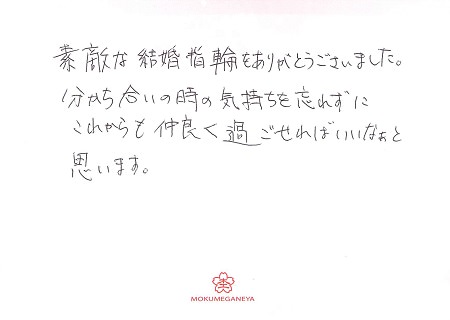 素敵な結婚指輪をありがとうございました。
分かち合いの時の気持ちを忘れずに
これからも仲良く過ごせればいいなぁと
思います。
MOKUMEGANEYA